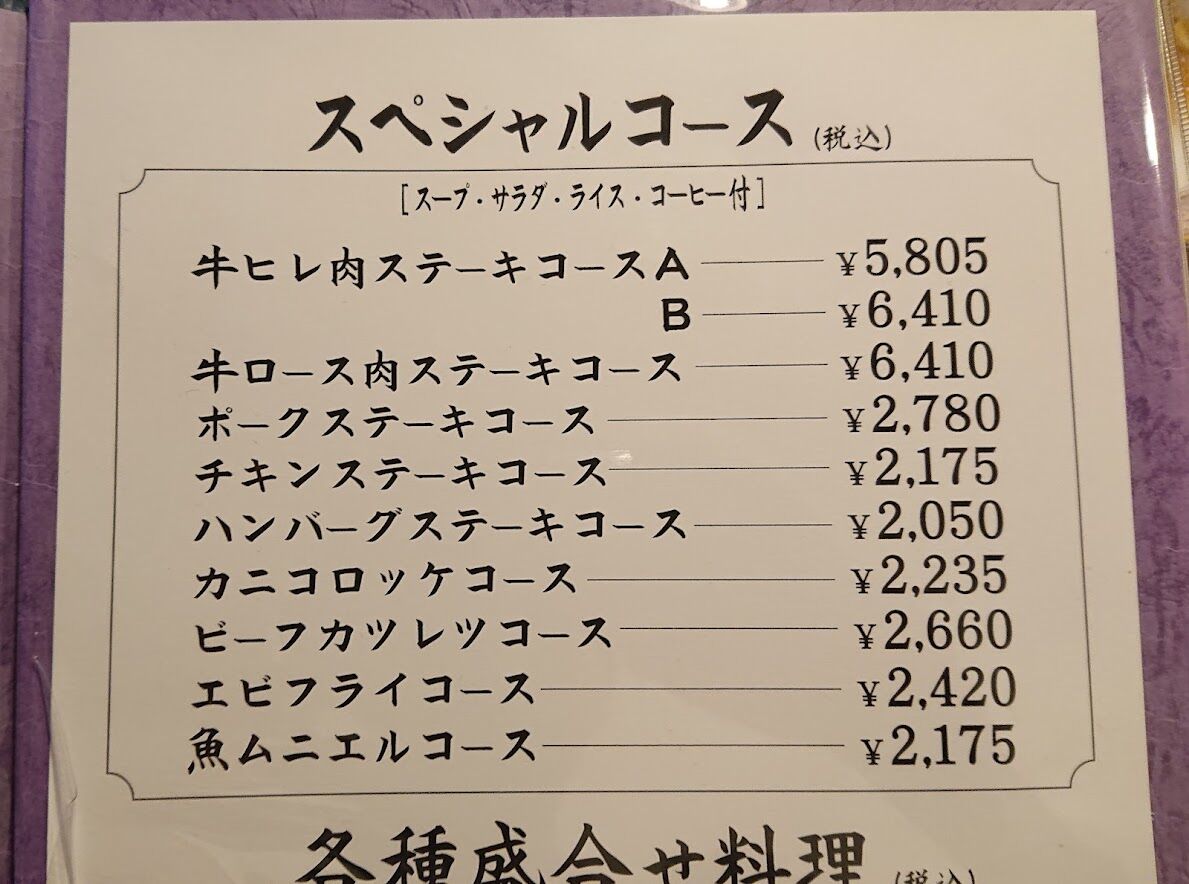 スペシャルコース (税込)
[スープ・サラダ・ライス・コーヒー付]
牛ヒレ肉ステーキコースA ¥5,805
B ¥6,410
牛ロース肉ステーキコース ¥6,410
ポークステーキコース ¥2,780
チキンステーキコース ¥2,175
ハンバーグステーキコース ¥2,050
カニコロッケコース ¥2,235
ビーフカツレツコース ¥2,660
エビフライコース ¥2,420
魚ムニエルコース ¥2,175
各種盛合せ料理 (税込)